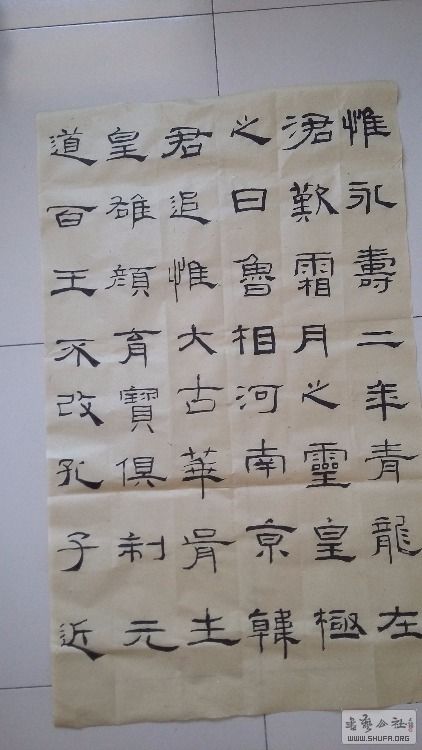 惟永壽二年青龍在
涒歎霜月之靈皇極
之日魯相河南京韓
君追惟大古華胥生
皇雄顏育寶俱制元
道百王不改孔子近
書藝公社
WWW.SHUFA.ORG